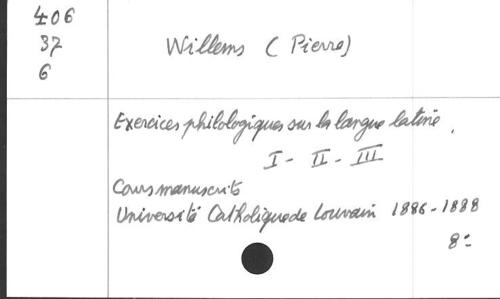 406
37
6
Willems (Pierre)
Exercices philologiques sur la langue latine.
I - II - III
Cours manuscrits
Université Catholique de Louvain 1886-1888
8°